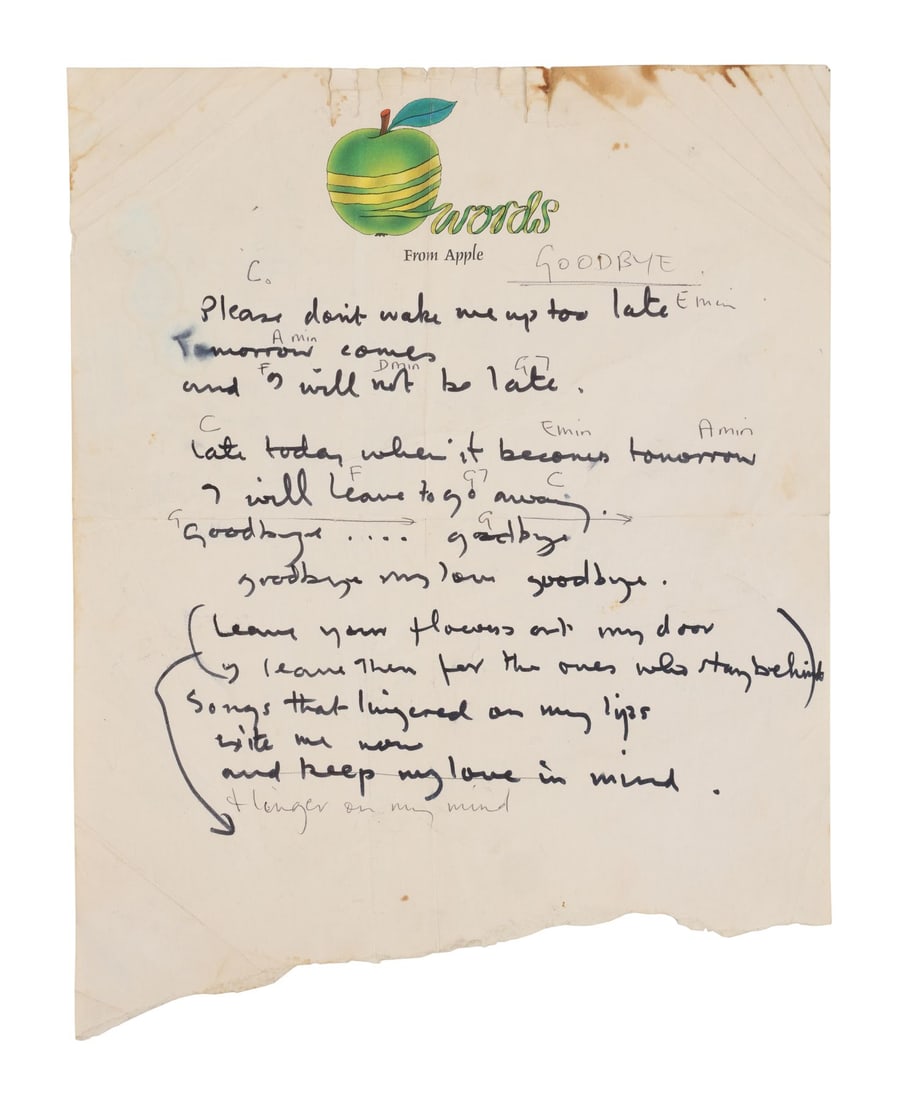 words
From Apple
GOODBYE
C. Emin
Please don't wake me up too late
Amin
Tomorrow comes
F Dmin G7
and I will not be late.
C Emin Amin
Late today when it becomes tomorrow
F G7 C
I will leave to go away.
G G
Goodbye .... goodbye
goodbye my love goodbye.
(Leave your flowers at my door
I leave them for the ones who stay behind)
Songs that lingered on my lips
me now
and keep my love in mind.
+ linger on my mind